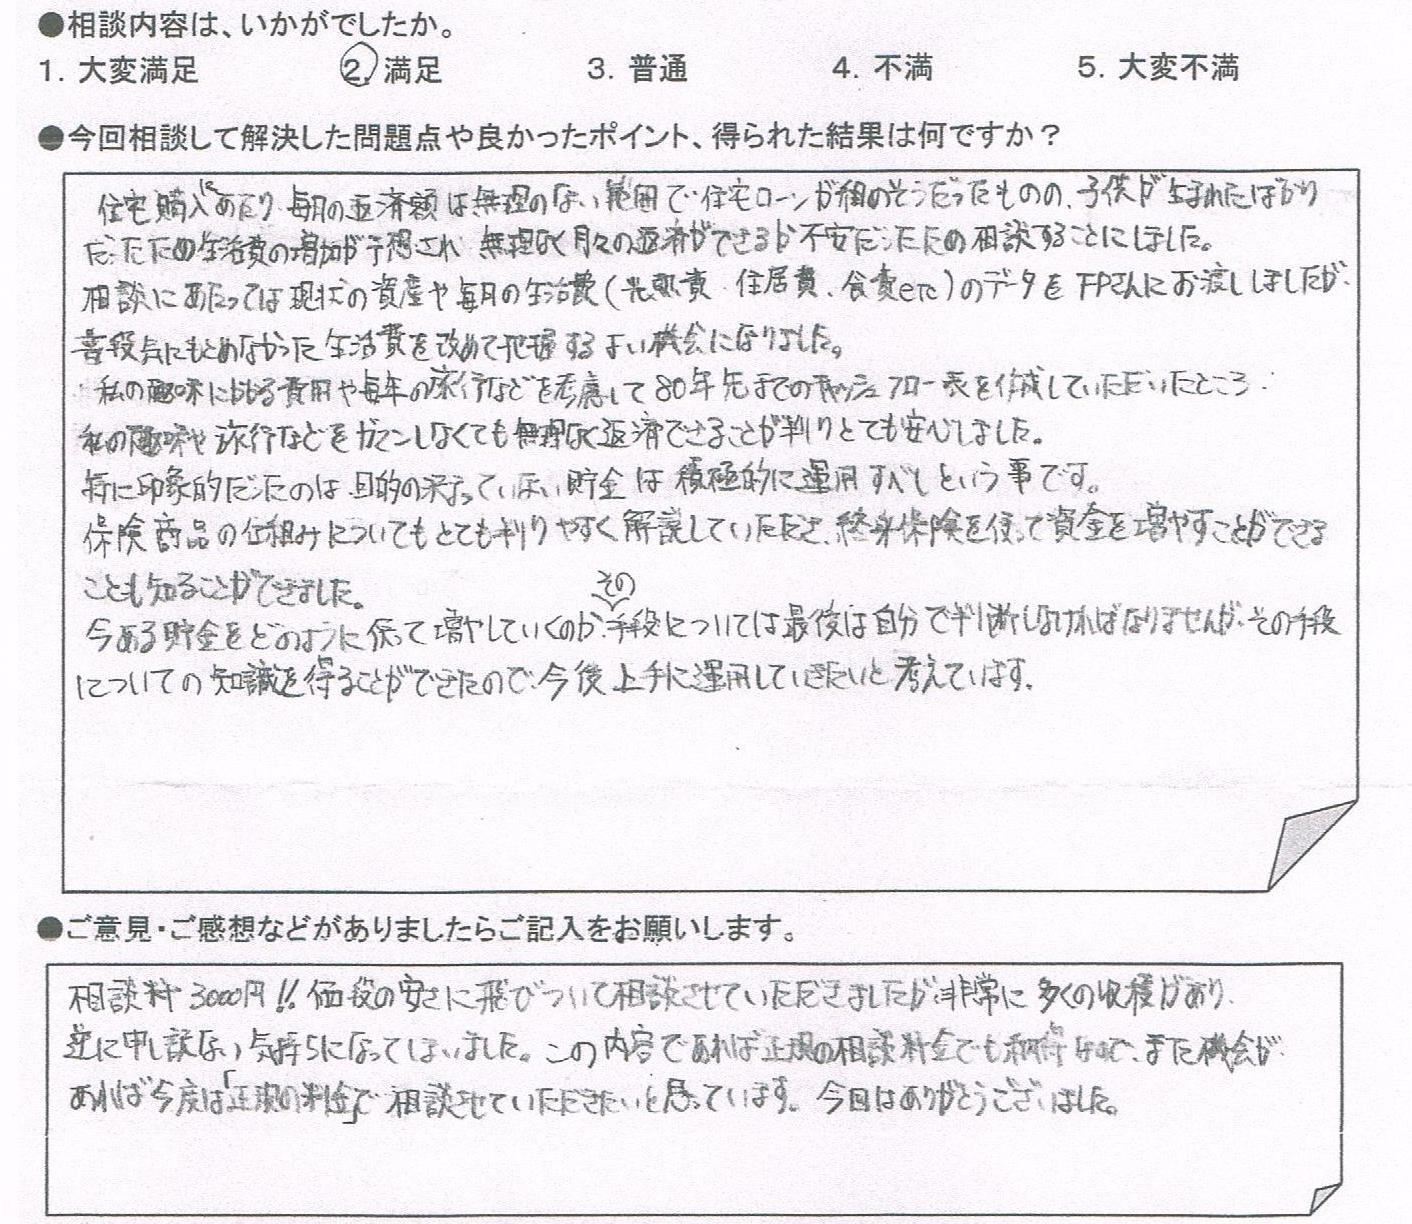 ●相談内容は、いかがでしたか。
1. 大変満足 2. 満足 3. 普通 4. 不満 5. 大変不満
●今回相談して解決した問題点や良かったポイント、得られた結果は何ですか？
住宅購入にあたり、毎月の返済額は無理のない範囲で住宅ローンが組めそうだったものの、子供が生まれたばかり
だったため生活費の増加が予想され、無理なく月々の返済ができるか不安だったため相談することにしました。
相談にあたっては現状の資産や毎月の生活費(光熱費、住居費、食費etc)のデータをFPさんにお渡ししましたが、
普段気にもとめなかった生活費を改めて把握するよい機会になりました。
私の趣味にかかる費用や毎年の旅行などを考慮して80年先までのキャッシュフロー表を作成していただいたところ、
私の趣味や旅行などをガマンしなくても無理なく返済できることが判りとても安心しました。
特に印象的だったのは、目的の決まっていない貯金は積極的に運用すべしという事です。
保険商品の仕組みについてもとても判りやすく解説していただき、終身保険を使って資金を増やすことができる
ことも知ることができました。
今ある貯金をどのように使って増やしていくのか、その手段については最後は自分で判断しなければなりませんが、その手段
についての知識を得ることができたので、今後上手に運用していきたいと考えています。
●ご意見・ご感想などがありましたらご記入をお願いします。
相談料3000円!!価段の安さに飛びついて相談させていただきましたが、非常に多くの収穫があり、
逆に申し訳ない気持ちになってしまいました。この内容であれば正規の相談料金でも納得なので、また機会が
あれば今度は「正規の料金」で相談させていただきたいと思っています。今回はありがとうございました。